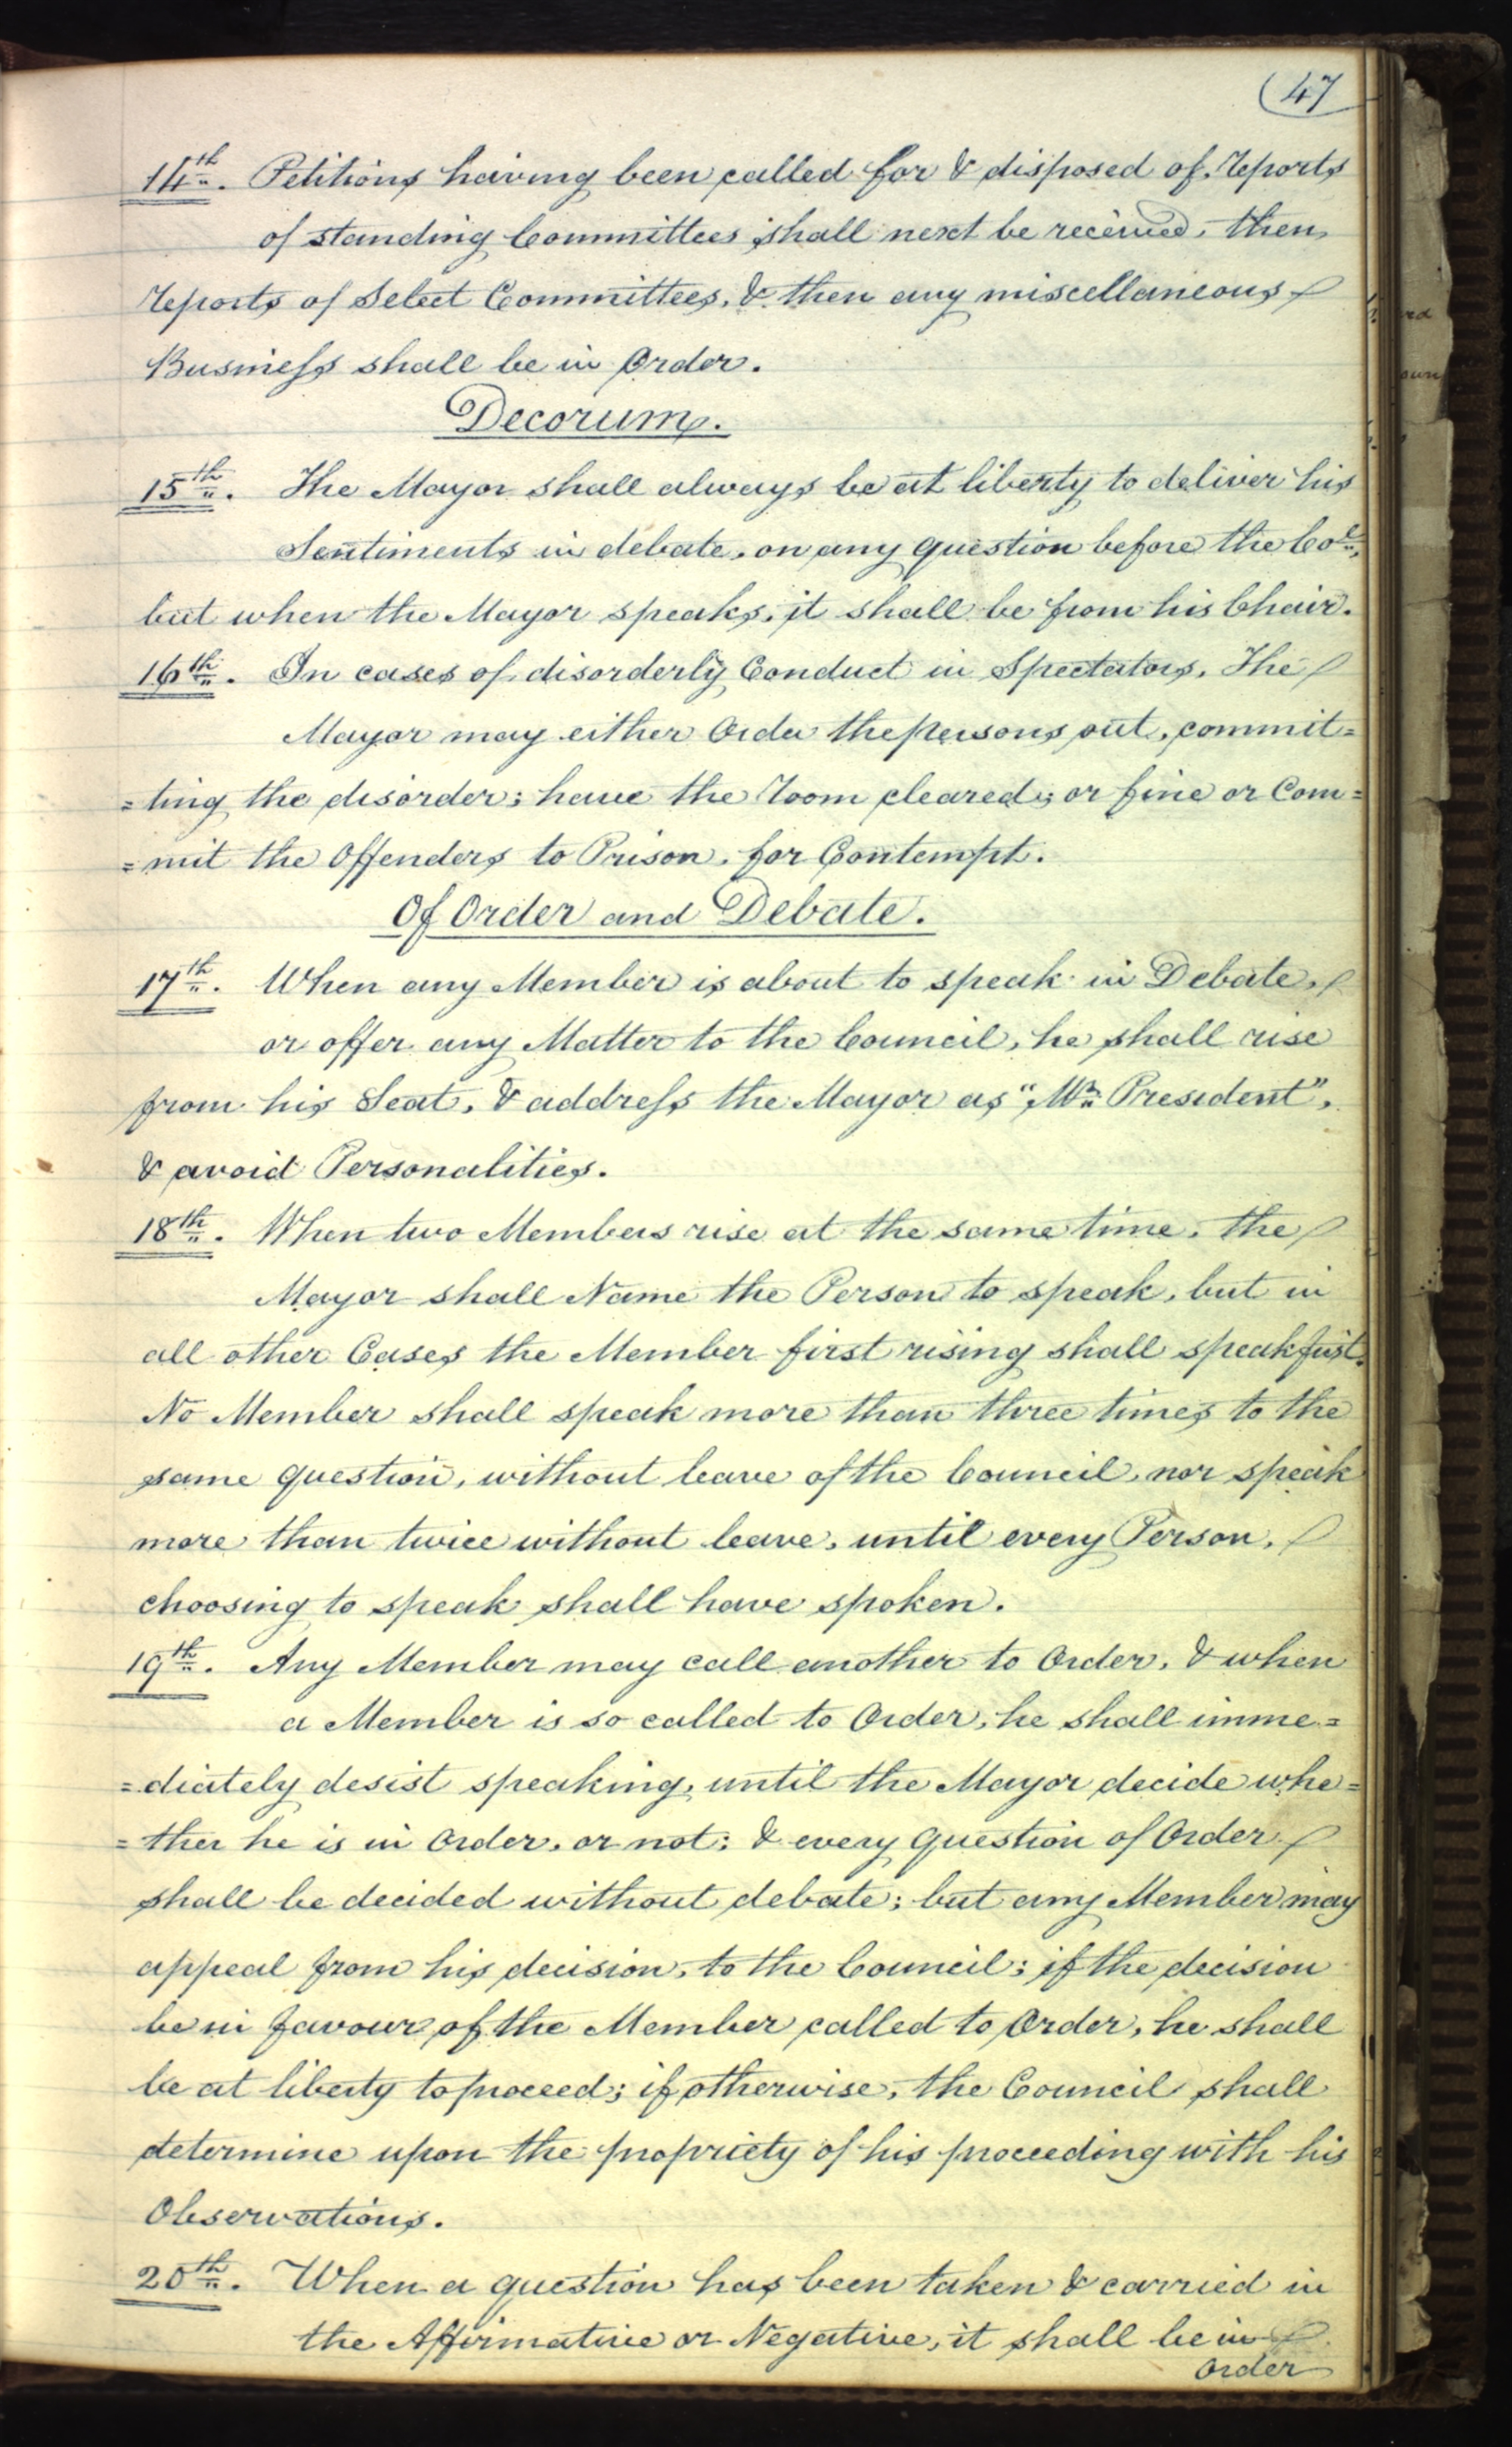 (47
14th. Petitions having been called for & disposed of, reports
of standing Committees shall next be received, then,
reports of Select Committees, & then any miscellaneous
Business shall be in Order.
Decorum.
15th. The Mayor shall always be at liberty to deliver his
Sentiments in debate, on any question before the Col.,
but when the Mayor speaks, it shall be from his Chair.
16th. In cases of disorderly Conduct in Spectators, The
Mayor may either Order the persons out, commit=
=ting the disorder; have the room cleared; or fine or Com=
=mit the Offenders to Prison, for Contempt.
Of Order and Debate.
17th. When any Member is about to speak in Debate,
or offer any Matter to the Council, he shall rise
from his Seat, & address the Mayor as "Mr. President",
& avoid Personalities.
18th. When two Members rise at the same time, the
Mayor shall Name the Person to speak, but in
all other Cases the Member first rising shall speak first.
No Member shall speak more than three times to the
same question, without leave of the Council, nor speak
more than twice without leave, until every Person,
choosing to speak shall have spoken.
19th. Any Member may call another to Order, & when
a Member is so called to Order, he shall imme=
=diately desist speaking, until the Mayor decide whe=
=ther he is in Order, or not; & every question of Order
shall be decided without debate; but any Member may
appeal from his decision, to the Council; if the decision
be in favour of the Member called to Order, he shall
be at liberty to proceed; if otherwise, the Council shall
determine upon the propriety of his proceeding with his
Observations.
20th. When a question has been taken & carried in
the Affirmative or Negative, it shall be in
Order